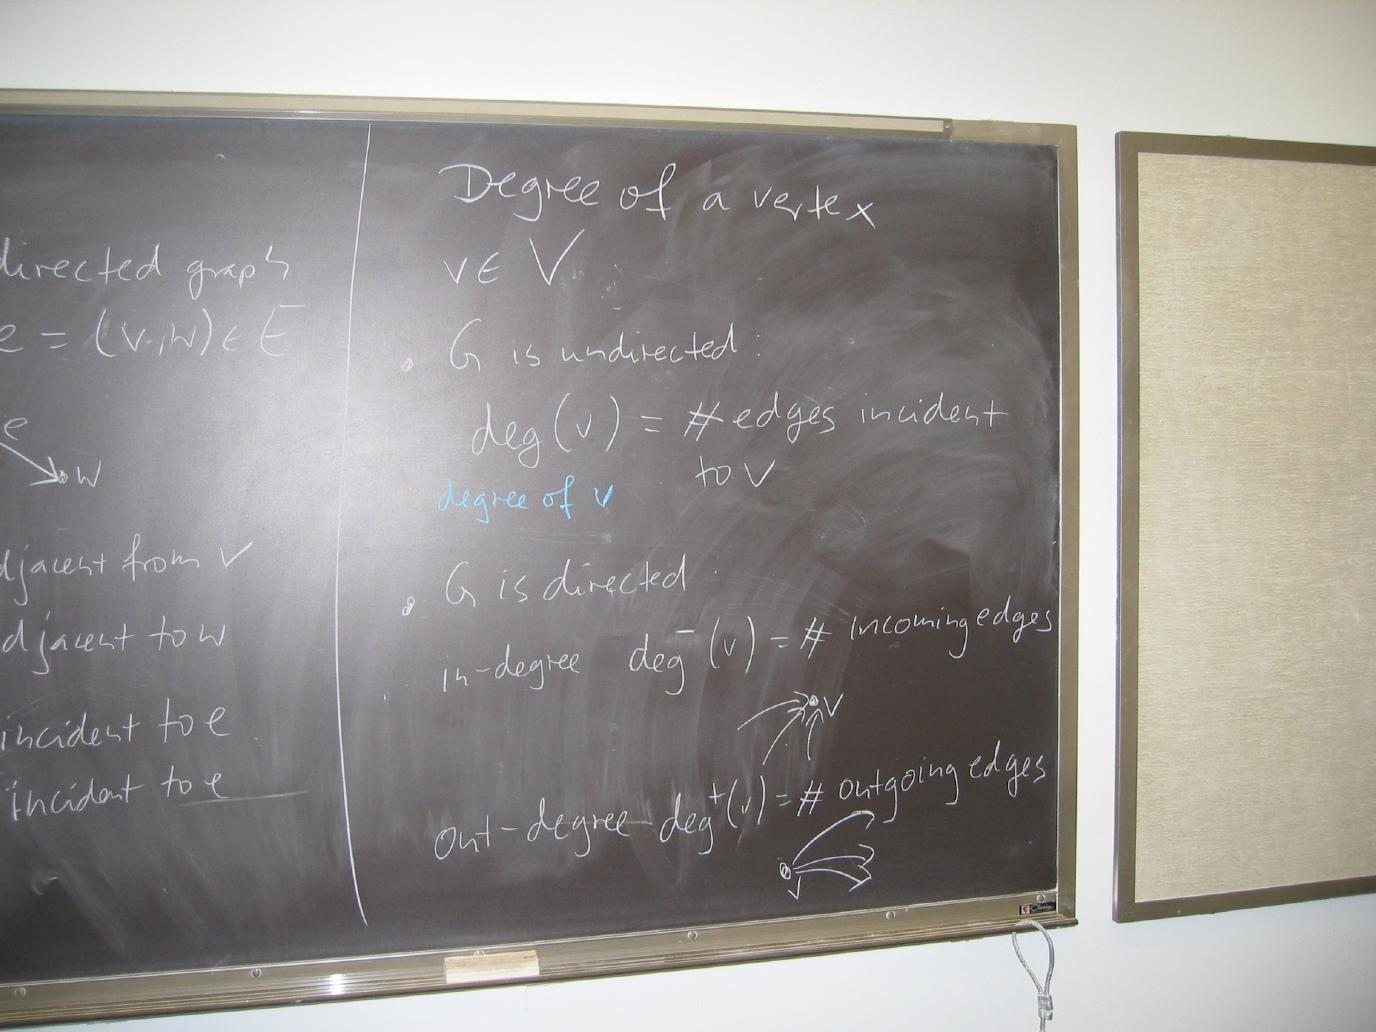 directed graph
e = (v,w) ∈ E
e
w
adjacent from v
adjacent to w
incident to e
incident to e
Degree of a vertex
v ∈ V
• G is undirected:
deg(v) = # edges incident
to v
degree of v
• G is directed
in-degree deg⁻(v) = # incoming edges
v
out-degree deg⁺(v) = # outgoing edges
v